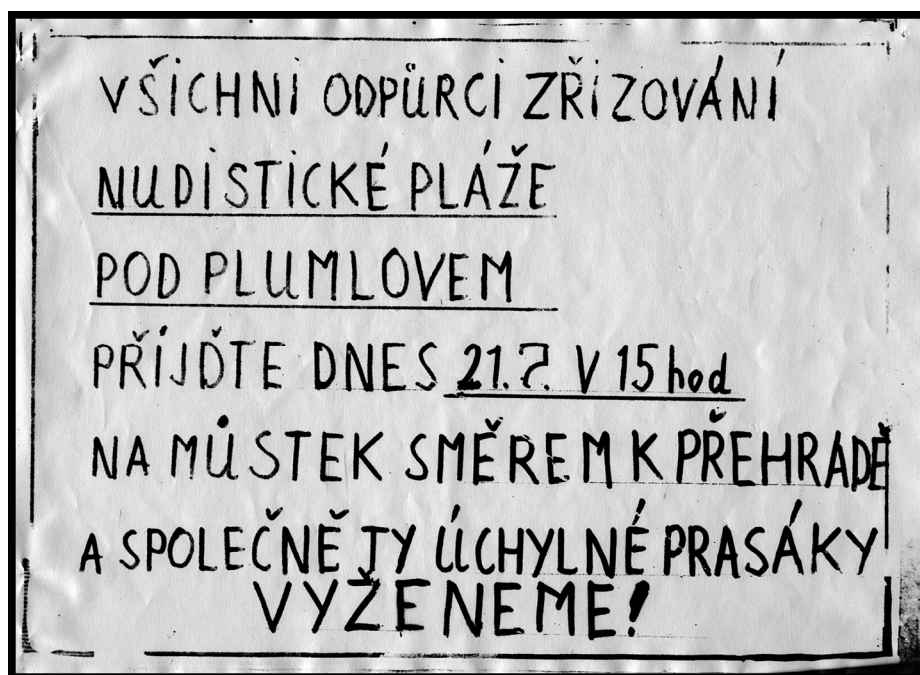 VŠICHNI ODPŮRCI ZŘIZOVÁNÍ
NUDISTICKÉ PLÁŽE
POD PLUMLOVEM
PŘIJĎTE DNES 21.7. V 15 hod
NA MŮSTEK SMĚREM K PŘEHRADĚ
A SPOLEČNĚ TY ÚCHYLNÉ PRASÁKY
VYŽENEME!